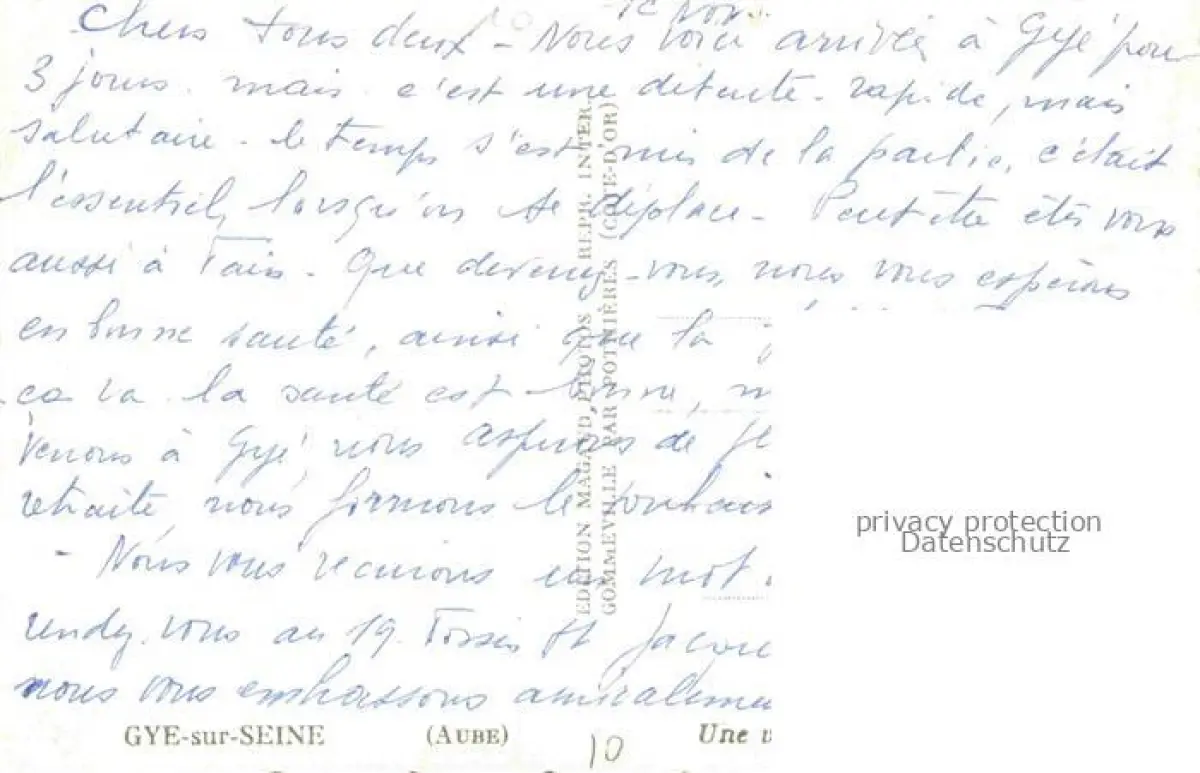 Chers tous deux - Nous voici arrivés à Gyé pour
3 jours. mais c'est une détente rapide, mais
salutaire - le temps s'est mis de la partie, c'était
l'essentiel, lorsqu'on se déplace - Peut être êtes vous
aussi à - Que devenez-vous, nous vous espérons
en bonne santé, ainsi que la
ça va la santé est bonne,
venons à Gyé, nous aspirons de
retraite, nous formons le
- Nous vous un mot
vous au 19. St Jacque
nous vous embrassons amicaleme
GYE-sur-SEINE (AUBE) Une v
10
EDITION MAGAUD, PHOTOS REPR. INTER.
GOMMEVILLE PAR POTHIÈRES (COTE-D'OR)
privacy protection
Datenschutz